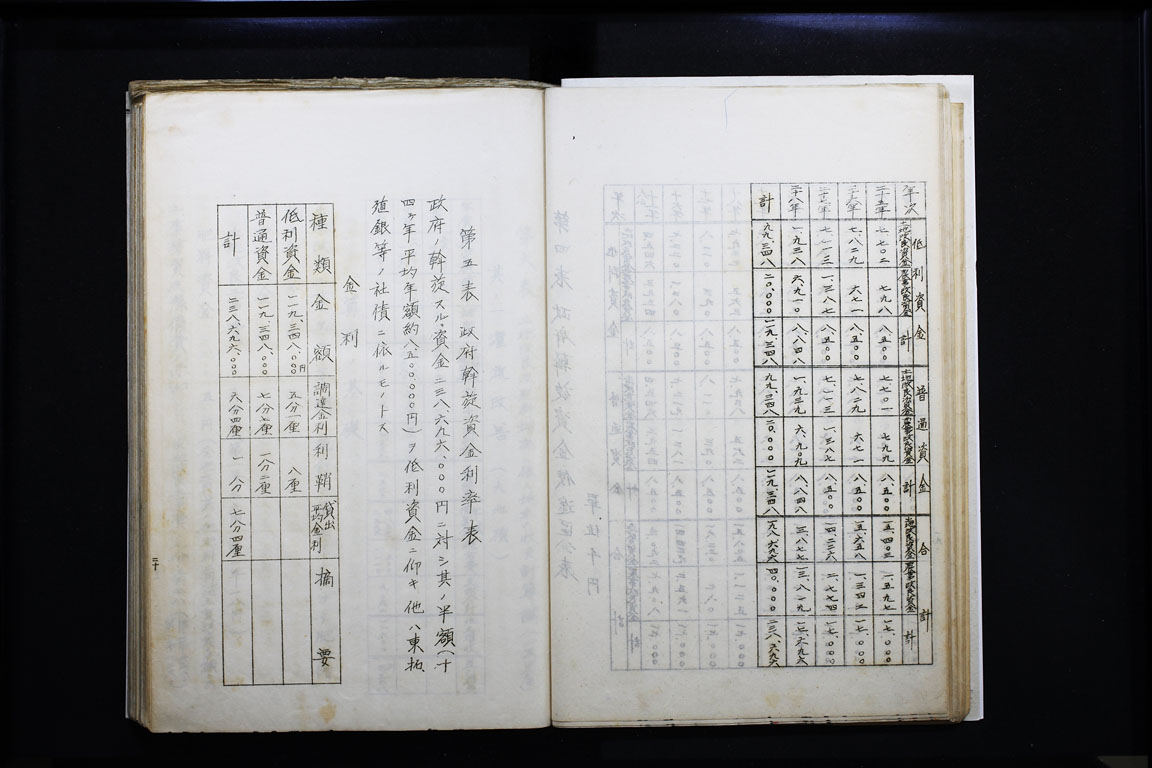 年次 低利資金 普通資金 合計
土地改良資金 農事改良資金 計 土地改良資金 農事改良資金 計 土地改良資金 農事改良資金 計
二十五年 七、七〇二 七九八 八、五〇〇 七、七〇一 七九九 八、五〇〇 一五、四〇三 一、五九七 一七、〇〇〇
二十六年 七、八二九 六七一 八、五〇〇 七、八二九 六七一 八、五〇〇 一五、六五八 一、三四二 一七、〇〇〇
二十七年 七、一一三 一、三八七 八、五〇〇 七、一一三 一、三八七 八、五〇〇 一四、二二六 二、七七四 一七、〇〇〇
二十八年 一、九三八 六、九一〇 八、八四八 一、九三九 六、九〇九 八、八四八 三、八七七 一三、八一九 一七、六九六
計 九九、三四八 二〇、〇〇〇 一一九、三四八 九九、三四八 二〇、〇〇〇 一一九、三四八 一九八、六九六 四〇、〇〇〇 二三八、六九六
第五表 政府斡旋資金利率表
政府ノ斡旋スル資金二三八、六九六、〇〇〇円ニ対シ其ノ半額(十
四ヶ年平均年額約八、五〇〇、〇〇〇円)ヲ低利資金ニ仰キ他ハ東拓
殖銀等ノ社債ニ依ルモノトス
金利
種類 金額 調達金利 利鞘 貸出平均金利 摘要
低利資金 一一九、三四八、〇〇〇円 五分一厘 八厘
普通資金 一一九、三四八、〇〇〇 七分七厘 一分二厘
計 二三八、六九六、〇〇〇 六分四厘 一分 七分四厘
二十